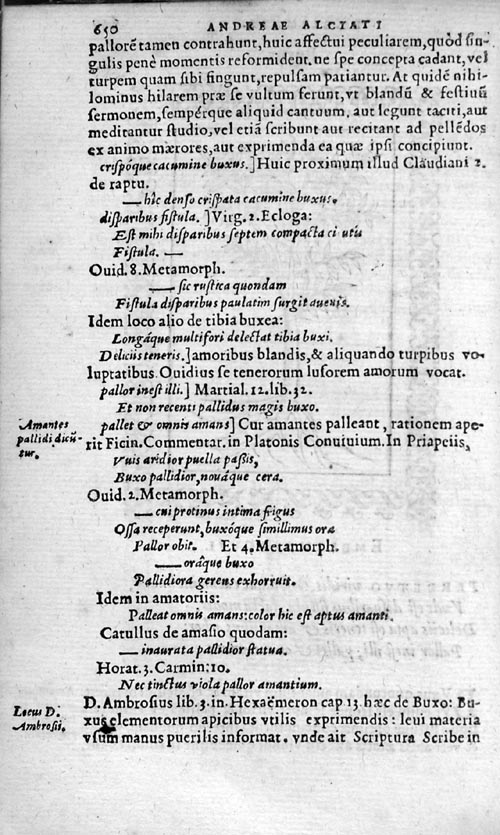 650 ANDREAE ALCIATI
pallorē tamen contrahunt, huic affectui peculiarem, quòd ſin-
gulis penè momentis reformident. ne ſpe concepta cadant, vel
turpem quam ſibi fingunt, repulſam patiantur. At quidē nihi-
lominus hilarem præ ſe vultum ferunt, vt blandū & feſtiuū
ſermonem, ſempérque aliquid cantuum, aut legunt taciti, aut
meditantur ſtudio, vel etiā ſcribunt aut recitant ad pellēdos
ex animo mærores, aut exprimenda ea quæ ipſi concipiunt.
criſpóque cacumine buxus.] Huic proximum illud Claudiani 2.
de raptu.
— hîc denſo criſpata cacumine buxus.
diſparibus fiſtula. ] Virg. 2. Ecloga:
Eſt mihi diſparibus ſeptem compacta cicutis
Fiſtula. —
Ouid. 8. Metamorph.
— ſic ruſtica quondam
Fiſtula diſparibus paulatim ſurgit auenis.
Idem loco alio de tibia buxea:
Longáque multifori delectat tibia buxi.
Deliciis teneris.] amoribus blandis, & aliquando turpibus vo-
luptatibus. Ouidius ſe tenerorum luſorem amorum vocat.
pallor ineſt illi.] Martial. 12. lib. 32.
Et non recenti pallidus magis buxo.
Amantes
pallidi dicū-
tur.
pallet & omnis amans] Cur amantes palleant, rationem ape-
rit Ficin. Commentar. in Platonis Conuiuium. In Priapeiis,
Vuis aridior puella paßis,
Buxo pallidior, nouáque cera.
Ouid. 2. Metamorph.
— cui protinus intima frigus
Oſſa receperunt, buxóque ſimillimus ora
Pallor obit. Et 4. Metamorph.
— oráque buxo
Pallidiora gerens exhorruit.
Idem in amatoriis:
Palleat omnis amans: color hic eſt aptus amanti.
Catullus de amaſio quodam:
— inaurata pallidior ſtatua.
Horat. 3. Carmin: 10.
Nec tinctus viola pallor amantium.
Locus D.
Ambroſii.
D. Ambroſius lib. 3. in. Hexaëmeron cap 13 hæc de Buxo: Bu-
xus elementorum apicibus vtilis exprimendis: leui materia
vſum manus puerilis informat. vnde ait Scriptura Scribe in